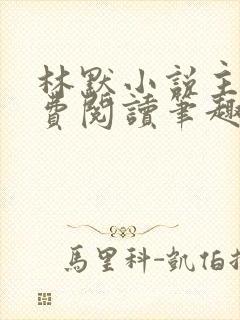 林默小說主
費閱讀筆趣
馬里科-凱伯